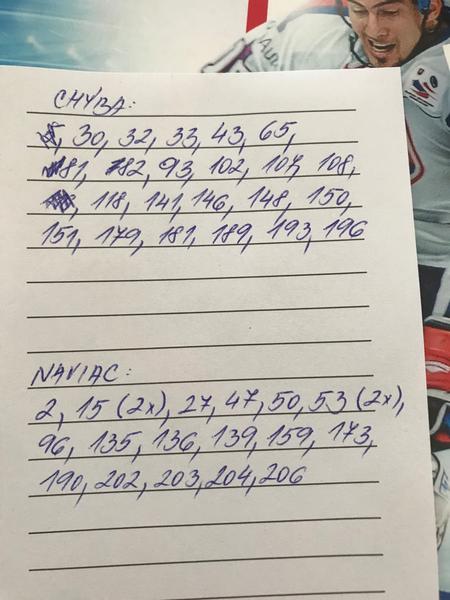 CHÝBA:
30, 32, 33, 43, 65,
81, 82, 93, 102, 107, 108,
118, 141, 146, 148, 150,
151, 179, 181, 189, 193, 196
NAVIAC:
2, 15 (2x), 27, 47, 50, 53 (2x),
96, 135, 136, 139, 159, 173,
190, 202, 203, 204, 206